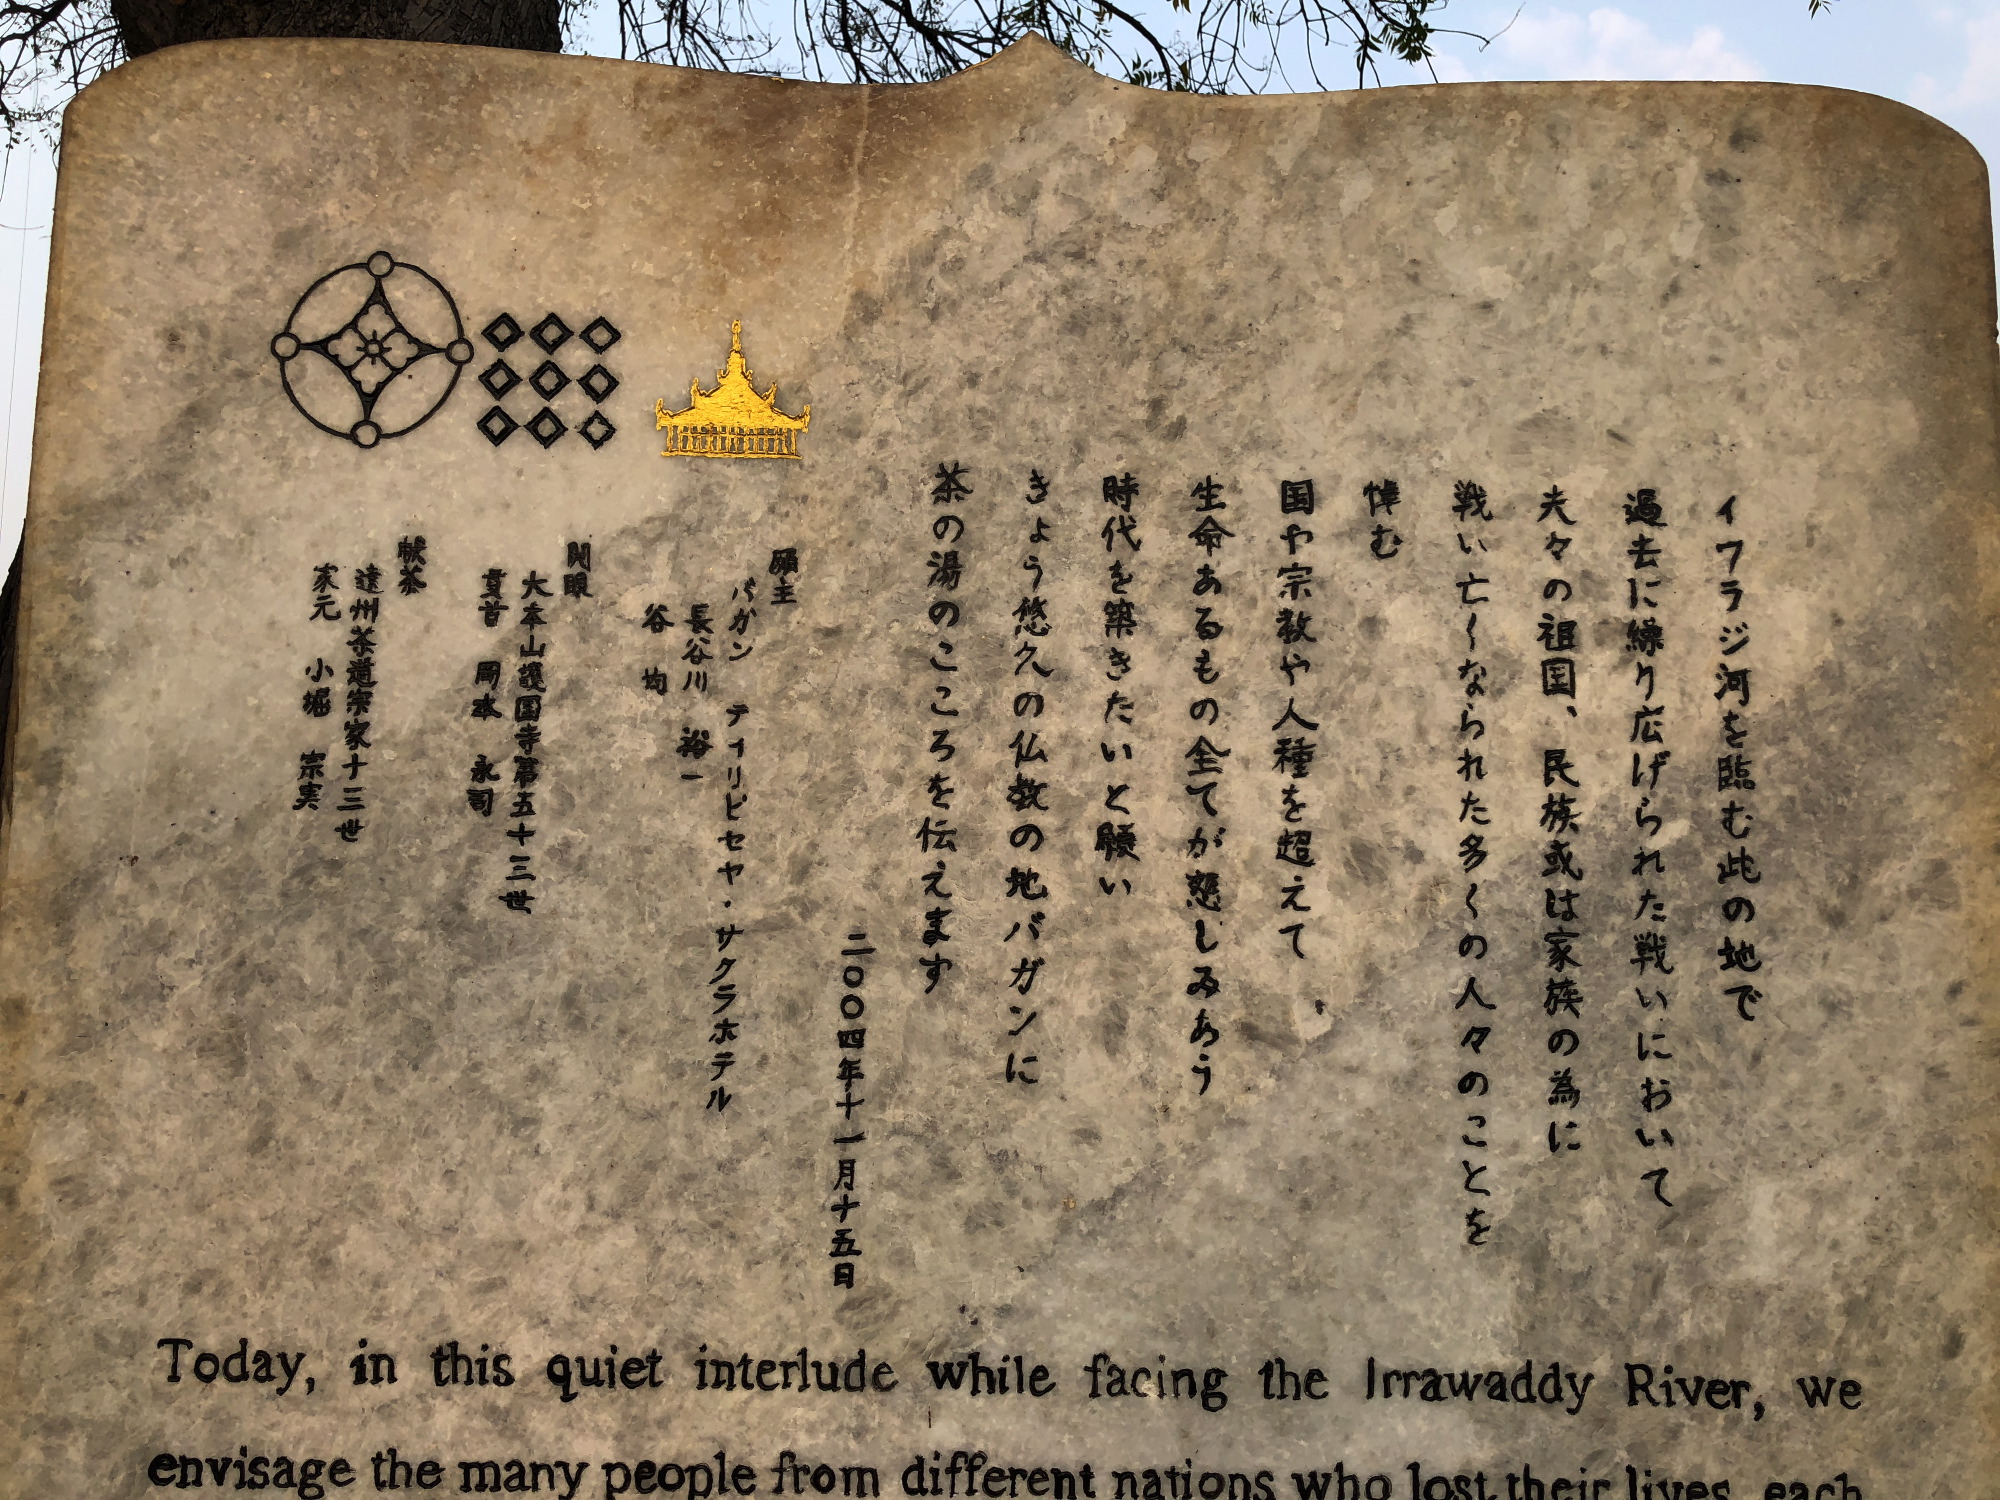 イワラジ河を臨む此の地で
過去に繰り広げられた戦いにおいて
夫々の祖国、民族或は家族の為に
戦い亡くなられた多くの人々のことを
悼む
国や宗教や人種を超えて
生命あるもの全てが慈しみあう
時代を築きたいと願い
きょう悠久の仏教の地バガンに
茶の湯のこころを伝えます
二〇〇四年十一月十五日
願主
バガン ティリピセヤ・サクラホテル
長谷川 裕一
谷 均
開眼
大本山護国寺第五十三世
貫首 岡本 永司
献茶
遠州茶道宗家十三世
家元 小堀 宗実
Today, in this quiet interlude while facing the Irrawaddy River, we
envisage the many people from different nations who lost their lives, each